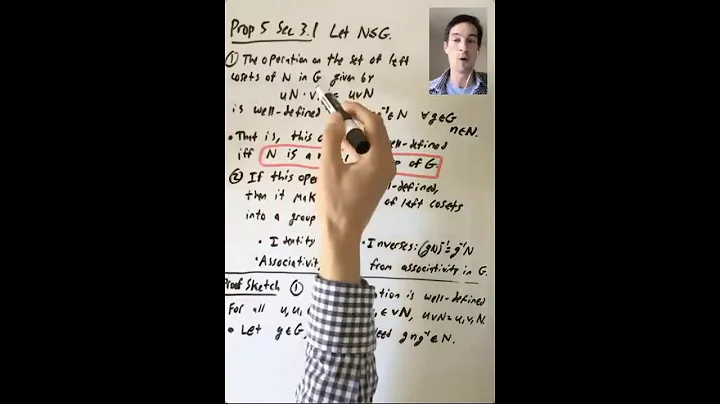 Prop 5 Sec 3.1 Let N≤G.
① The operation on the set of left
cosets of N in G given by
uN · v = uvN
is well-defined g⁻¹∈N ∀g∈G
n∈N.
• That is, this well-defined
iff N is a of G.
② If this defined,
then it of left cosets
into a group
• Identity • Inverses: (gN)⁻¹=g⁻¹N
• Associativity from associativity in G.
Proof Sketch ① is well-defined
For all u, u₁ ∈ vN, uvN=u₁v₁N.
• Let g∈G, gng⁻¹∈N.